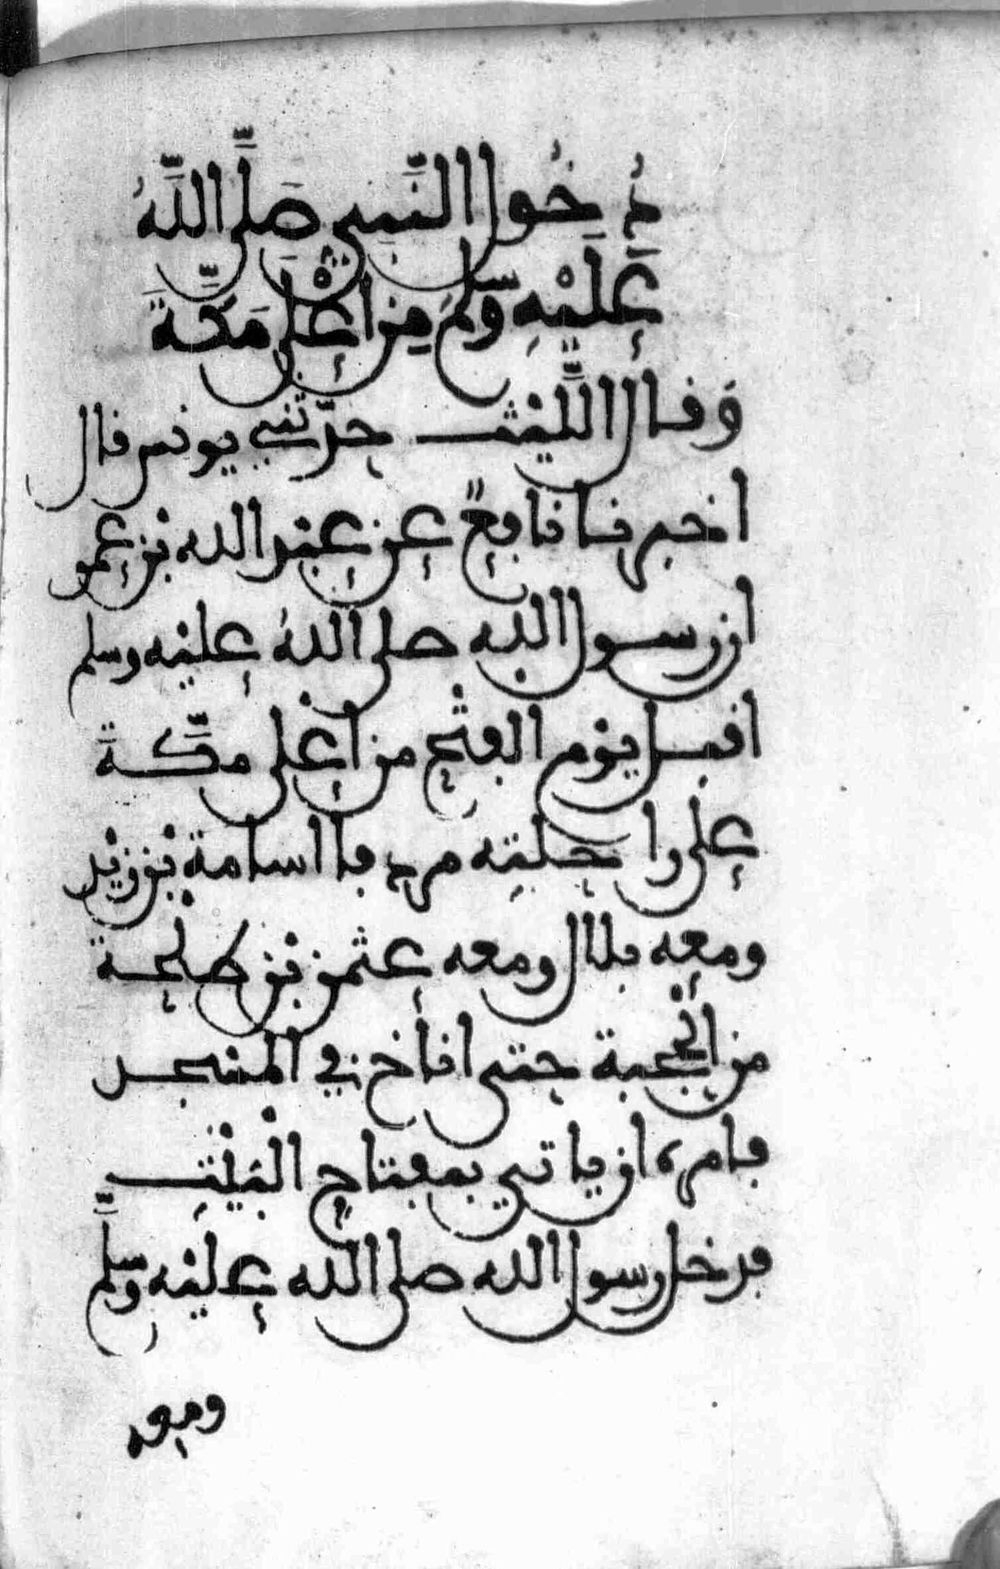 دُخُولُ النَّبِيِّ صَلَّى اللَّهُ
عَلَيْهِ وَسَّلَمَ مِنَ اعْلَى مَكَّةَ
وَقَالَ اللَّيْثُ حدّثني يونس قال
اخبرنا نافِعٌ عن عبْد الله بْن عمر
ان رسول الله صلى اللهُ عليْه وسلم
اقبل يوْم الفتْح من اعْلى مكَّة
على راحلتِه مردفا اسامة بْن زيْد
ومعه بلال ومعه عثمن بْن طلْحة
من الحْجبة حتى اناخ في المسْجد
فامره ان ياتي بمفتاح البيْتِ
فدخل رسول الله صلى الله عليْه وسلَّم
ومعه